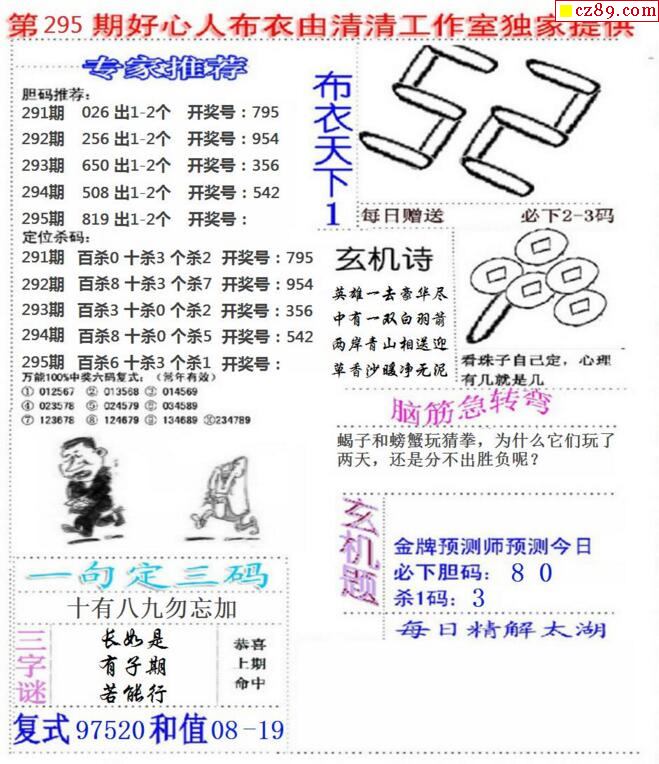 cz89.com
第295期好心人布衣由清清工作室独家提供
专家推荐
胆码推荐：
291期 026 出1-2个 开奖号：795
292期 256 出1-2个 开奖号：954
293期 650 出1-2个 开奖号：356
294期 508 出1-2个 开奖号：542
295期 819 出1-2个 开奖号：
定位杀码：
291期 百杀0 十杀3 个杀2 开奖号：795
292期 百杀8 十杀3 个杀7 开奖号：954
293期 百杀3 十杀0 个杀2 开奖号：356
294期 百杀8 十杀0 个杀5 开奖号：542
295期 百杀6 十杀3 个杀1 开奖号：
万能100%中奖六码复式：（常年有效）
① 012567 ② 013568 ③ 014569
④ 023578 ⑤ 024579 ⑥ 034589
⑦ 123678 ⑧ 124679 ⑨ 134689 ⑩234789
布衣天下1
52
每日赠送 必下2-3码
玄机诗
英雄一去豪华尽
中有一双白羽箭
两岸青山相送迎
草香沙暖净无泥
看珠子自己定，心理
有几就是几
脑筋急转弯
蝎子和螃蟹玩猜拳，为什么它们玩了
两天，还是分不出胜负呢？
玄机题
金牌预测师预测今日
必下胆码：8 0
杀1码：3
每日精解太湖
一句定三码
十有八九勿忘加
三字谜
长如是
有子期
若能行
恭喜
上期
命中
复式97520和值08-19